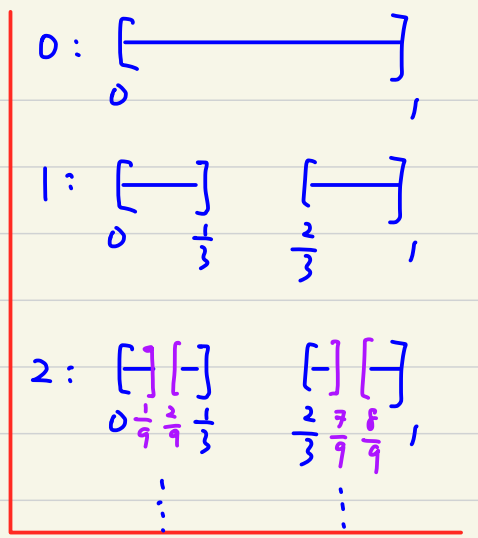 0: [ ]
0 1
1: [ ] [ ]
0 1/3 2/3 1
2: [ ] [ ] [ ] [ ]
0 1/9 2/9 1/3 2/3 7/9 8/9 1
⋮ ⋮